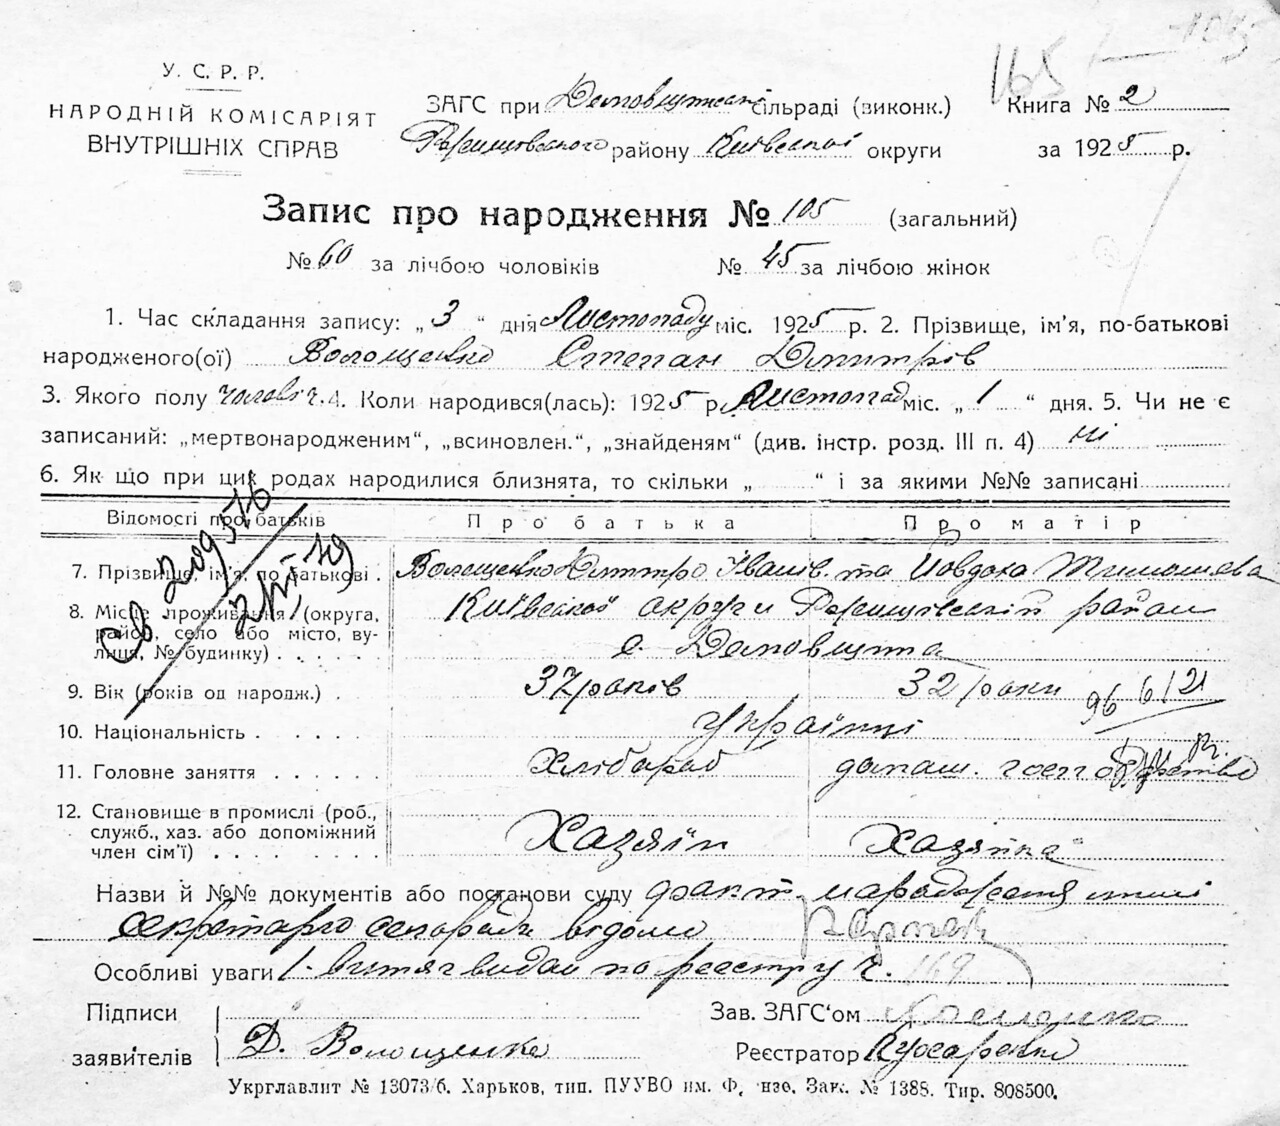 165
У. С. Р. Р.
НАРОДНІЙ КОМІСАРІЯТ
ВНУТРІШНІХ СПРАВ
ЗАГС при сільраді (виконк.)
району Київської округи
Книга № 2
за 1925 р.
Запис про народження № 105 (загальний)
№ 60 за лічбою чоловіків № 45 за лічбою жінок
1. Час складання запису: „ 3 “ дня Листопаду міс. 1925 р. 2. Прізвище, ім'я, по-батькові
народженого(ої) Волощенко Степан Дмитрів
3. Якого полу чоловіч. 4. Коли народився(лась): 1925 р. Листопад міс. „ 1 “ дня. 5. Чи не є
записаний: „мертвонародженим“, „всиновлен.“, „знайденям“ (див. інстр. розд. III п. 4) ні
6. Як що при цих родах народилися близнята, то скільки „ “ і за якими №№ записані
Відомості про батьків Про батька Про матір
7. Прізвище, ім'я, по батькові . Волощенко Дмитро Іванів. та Йовдоха Тимошева
8. Місце проживання (округа, район, село або місто, вулиця, № будинку) . . . . . Київської округи Ржищівский район
с.
9. Вік (років од народж.) . 37 років 32 роки
10. Національність . . . . . . Українці
11. Головне заняття . . . . . . Хлібороб домаш. господарство
12. Становище в промислі (роб., служб., хаз. або допоміжний член сім'ї) . . . . . . . . Хазяїн Хазяйка
Назви й №№ документів або постанови суду факт народження
секретарю сельради відомо
Особливі уваги 1. витяг видан по реєстру №. 169
Підписи
заявителів Д. Волощенко
Зав. ЗАГС'ом
Реєстратор
Укрглавлит № 13073/б. Харьков, тип. ПУУВО им. Ф. нзе. Зак. № 1388. Тир. 808500.